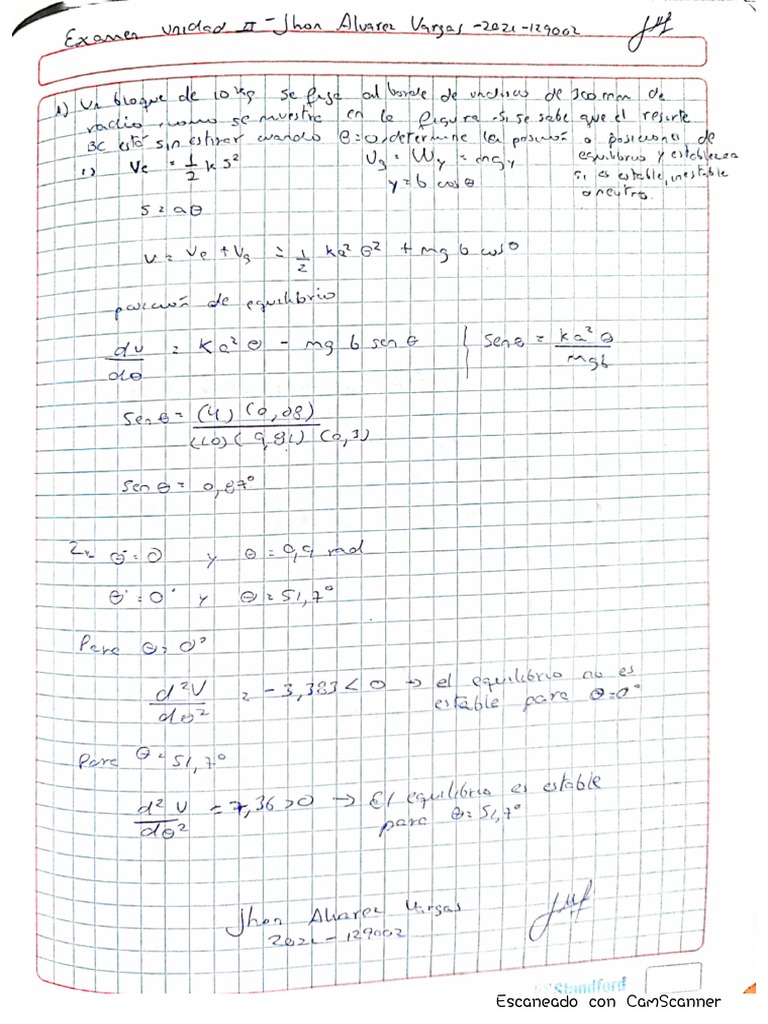 Examen Unidad II - Jhon Alvarez Vargas - 2021-129002
1) Un bloque de 10 kg se fija al borde de un disco de 300 mm de
radio, como se muestra en la figura. Si se sabe que el resorte
BC está sin estirar cuando θ=0, determine la posición o posiciones de
equilibrio y establezca
si es estable, inestable
o neutro.
1) Ve = 1/2 k s²
Vg = Wy = mgy
y = b cos θ
s = aθ
V = Ve + Vg = 1/2 ka² θ² + mg b cos θ
posición de equilibrio
dV/dθ = Ka² θ - mg b sen θ | sen θ = ka² θ / mgb
sen θ = (4) (0,08) / (10) (9,81) (0,3)
sen θ = 0,87°
2. θ = 0 y θ = 0,9 rad
θ = 0° y θ = 51,7°
Para θ = 0°
d²V/dθ² = -3,383 < 0 → el equilibrio no es
estable para θ=0°
Para θ = 51,7°
d²V/dθ² = 7,36 > 0 → El equilibrio es estable
para θ = 51,7°
Jhon Alvarez Vargas
2021-129002
Standford
Escaneado con CamScanner